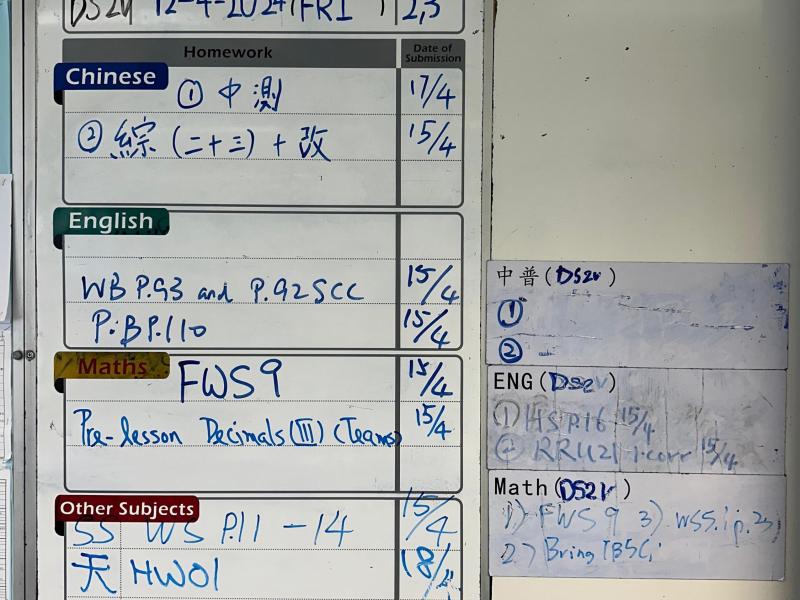 12-4-2024 (FRI) 2,3
Homework Date of Submission
Chinese
① 中測 17/4
② 綜 (二十三) + 改 15/4
English
WB P.93 and P.92 SCC 15/4
P.B P.110 15/4
Maths
FWS 9 15/4
Pre-lesson Decimals (III) (Teams) 15/4
Other Subjects
SS WS P.11 - 14 15/4
天 HW01 18/4
中普 (DS2r)
①
②
ENG (DS2r)
① HS P.16 15/4
② RRU21 1.corr 15/4
Math (DS2r)
1) FWS 9 3) WS5.1 p.2
2) Bring TB5C